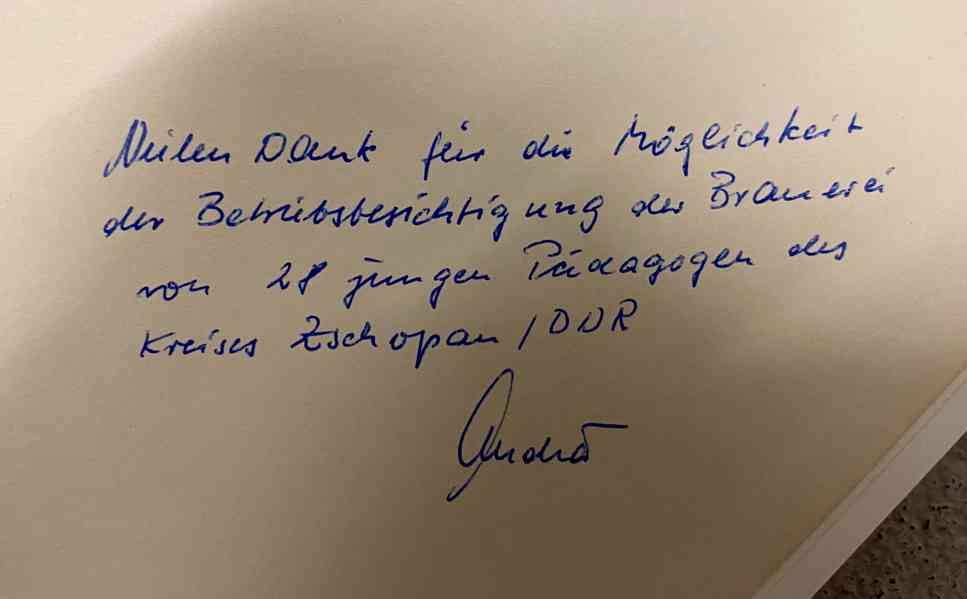 Vielen Dank für die Möglichkeit
der Betriebsbesichtigung der Brauerei
von 28 jungen Pädagogen des
Kreises Zschopau / DDR